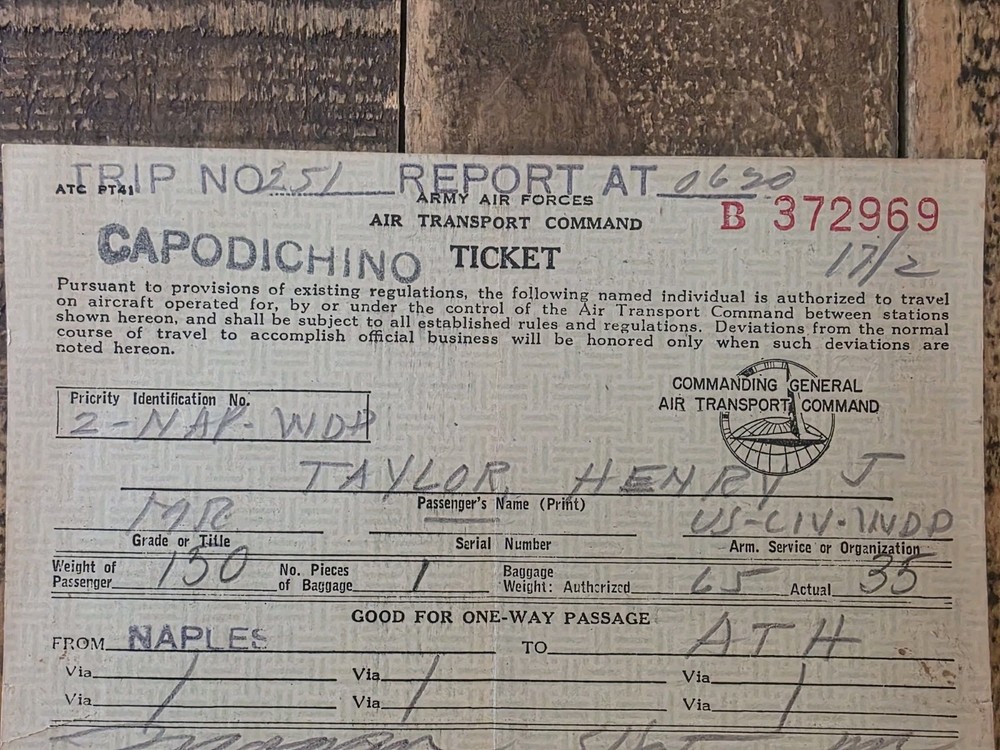 TRIP NO 251 REPORT AT 0620
ATC PT41
ARMY AIR FORCES
AIR TRANSPORT COMMAND
B 372969
CAPODICHINO TICKET 17/2
Pursuant to provisions of existing regulations, the following named individual is authorized to travel
on aircraft operated for, by or under the control of the Air Transport Command between stations
shown hereon, and shall be subject to all established rules and regulations. Deviations from the normal
course of travel to accomplish official business will be honored only when such deviations are
noted hereon.
COMMANDING GENERAL
AIR TRANSPORT COMMAND
Priority Identification No.
2-NAP-WDP
TAYLOR, HENRY J
Passenger's Name (Print)
MR US-CIV-WDP
Grade or Title Serial Number Arm. Service or Organization
Weight of Passenger 150 No. Pieces of Baggage 1 Baggage Weight: Authorized 65 Actual 35
GOOD FOR ONE-WAY PASSAGE
FROM NAPLES TO ATH
Via / Via / Via /
Via Via Via